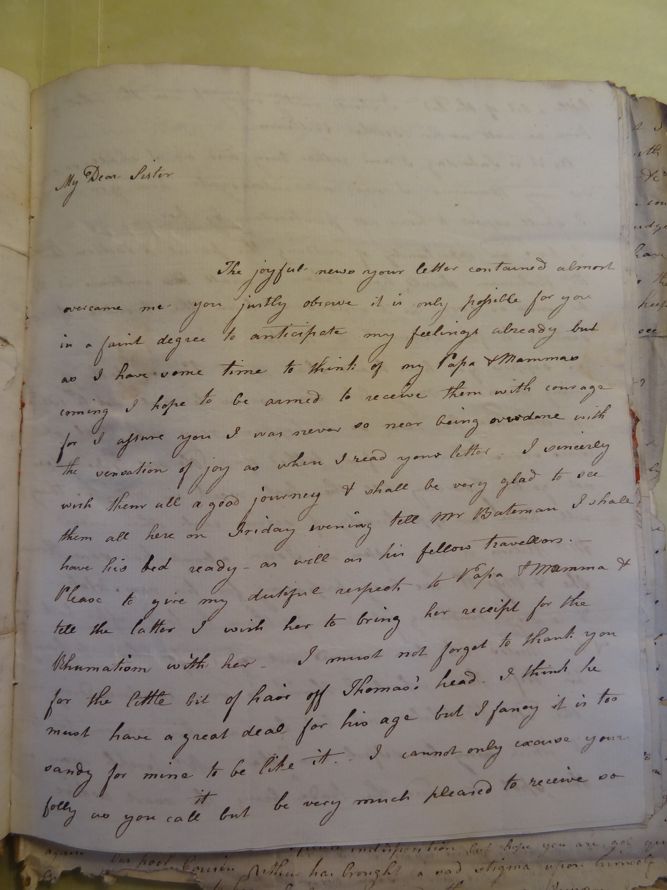 My Dear Sister
The joyful news your letter contained almost
overcame me you justly observe it is only possible for you
in a faint degree to anticipate my feelings already but
as I have some time to think of my Papa & Mammas
coming I hope to be armed to receive them with courage
for I assure you I was never so near being overdone with
the sensation of joy as when I read your letter. I sincerly
wish them all a good journey & shall be very glad to see
them all here on Friday evening tell Mr Bateman I shall
have his bed ready - as well as his fellow travellors. -
Please to give my dutiful respects to Papa & Mamma &
tell the latter I wish her to bring her receipt for the
Rhumatism with her - I must not forget to thank you
for the little bit of hair off Thomas's head. I think he
must have a great deal for his age but I fancy it is too
sandy for mine to be like it. - I cannot only excuse your
folly as you call it but be very much pleased to receive so
poor Cousin has brought a sad stigma upon himself